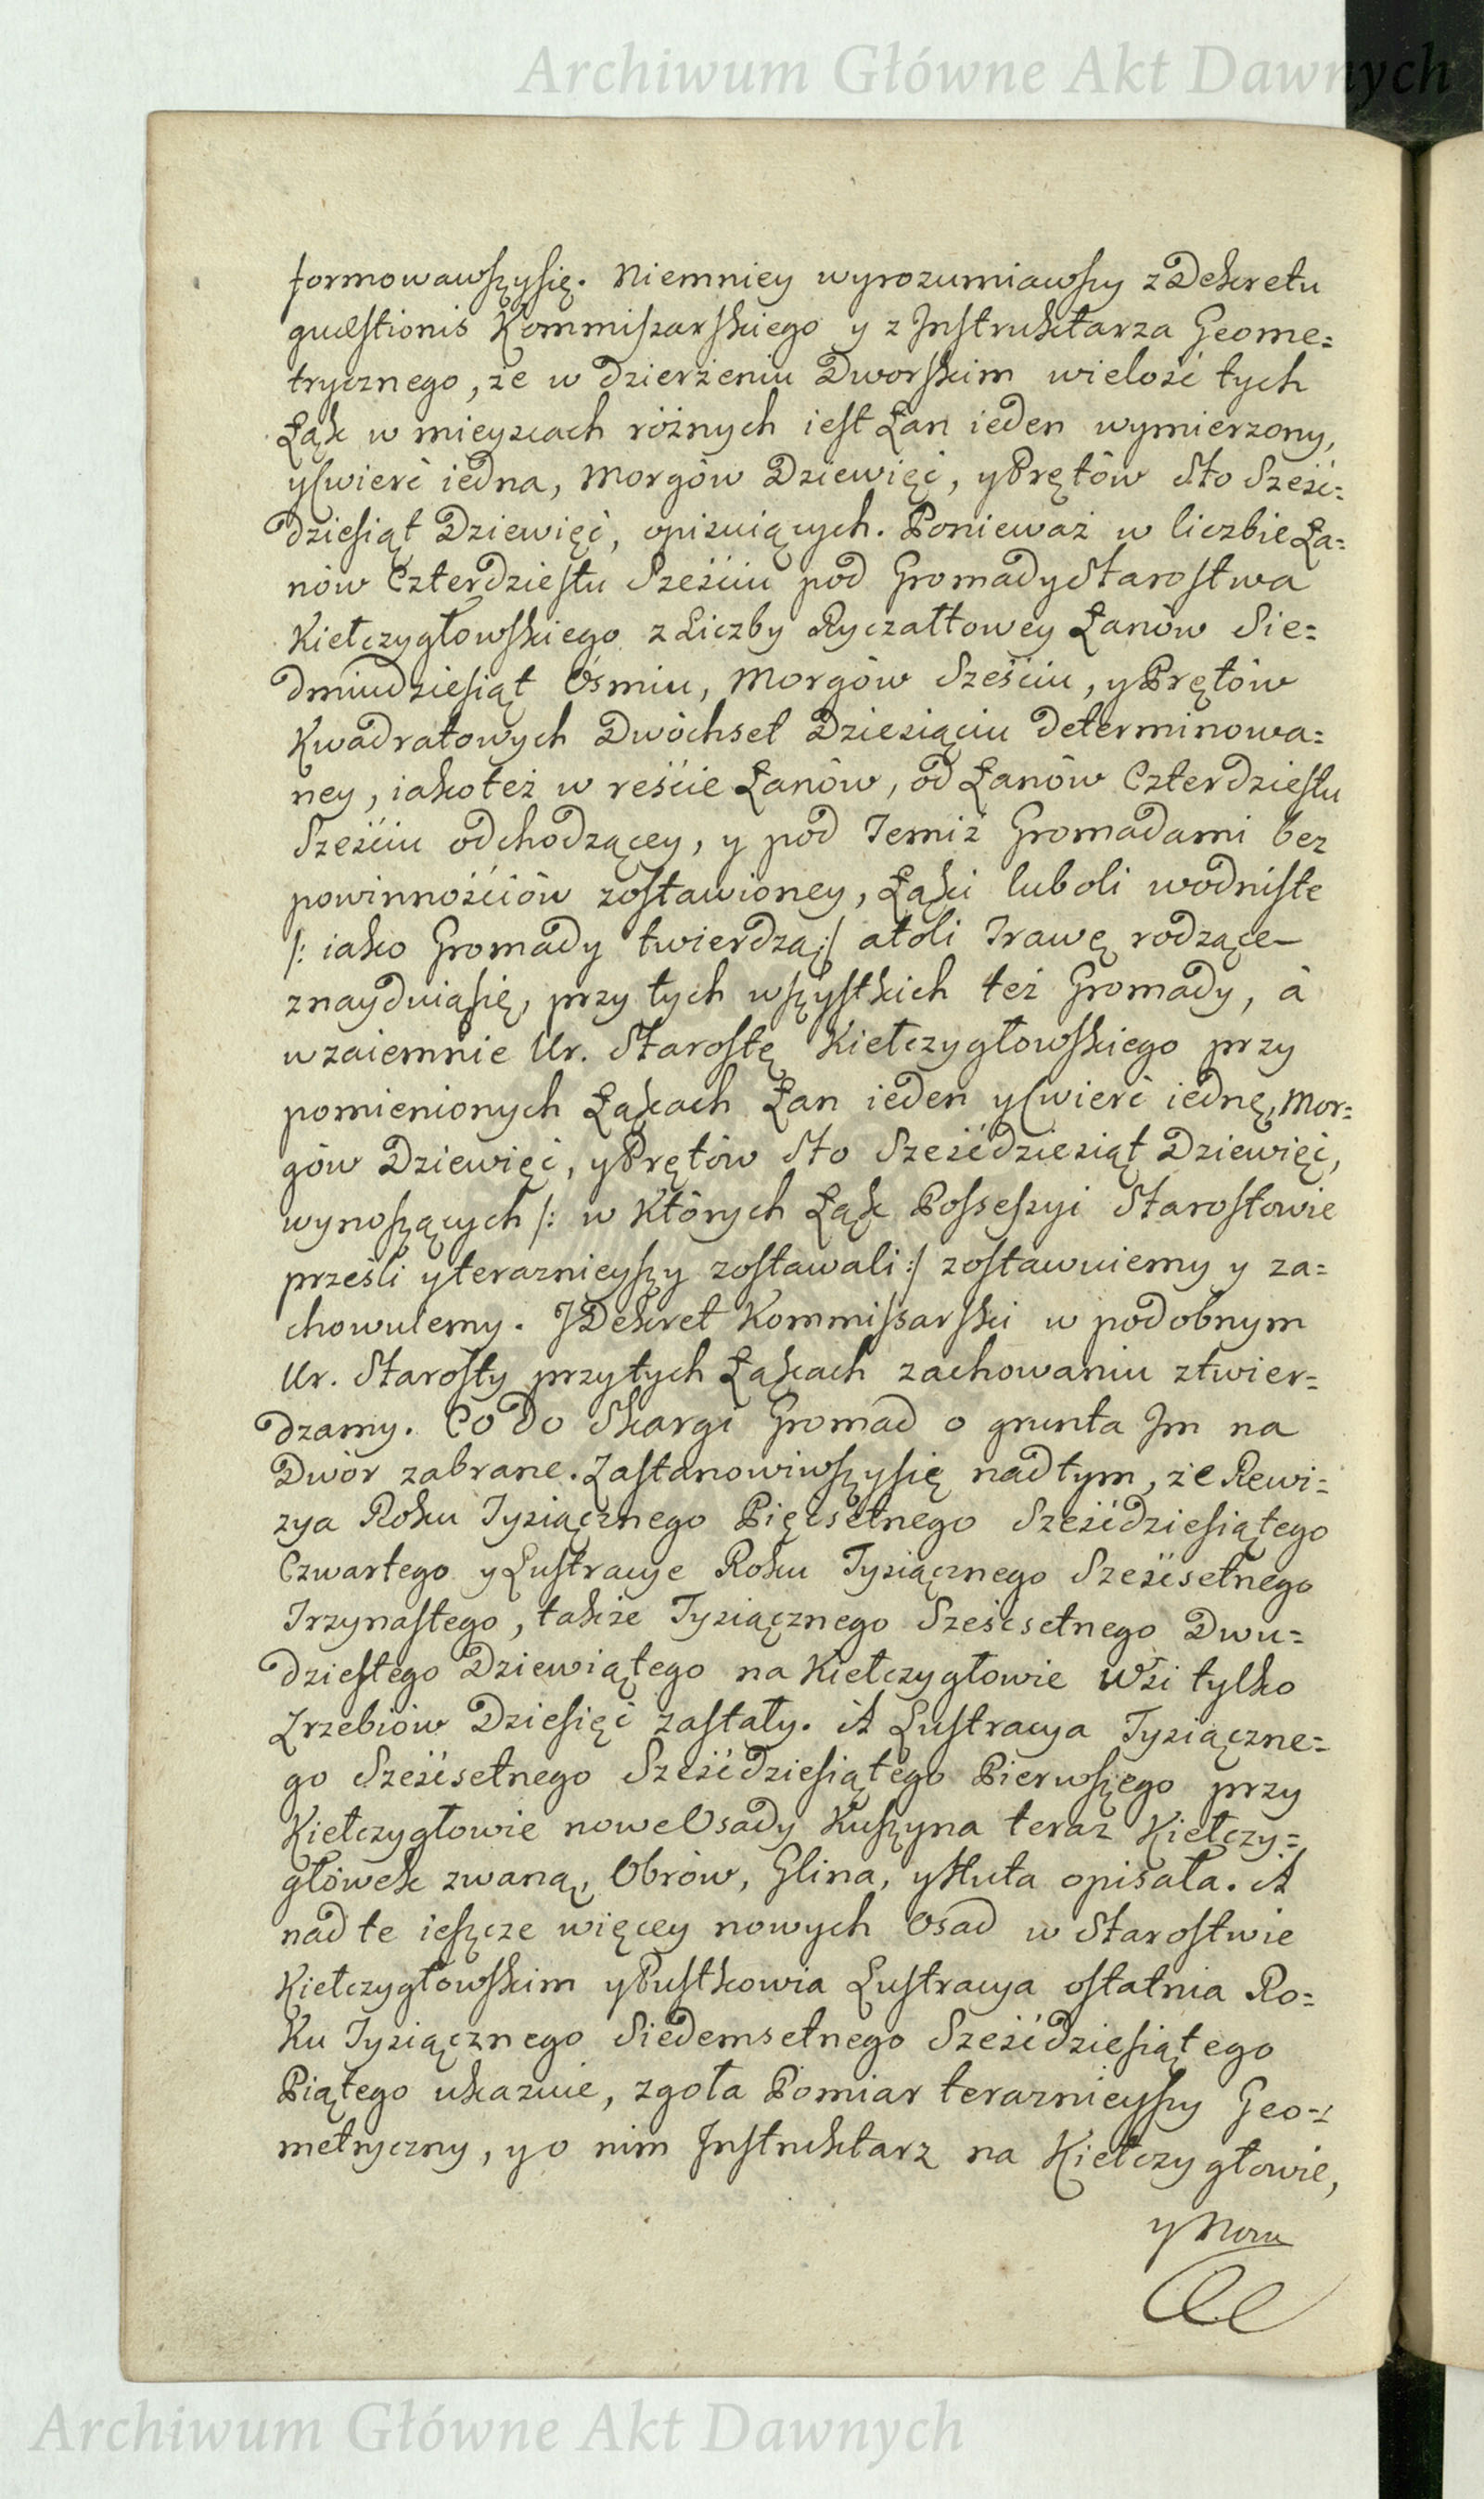 Archiwum Główne Akt Dawnych
formowawszysię. Niemniey wyrozumiawszy z Dekretu
quæstionis Kommissarskiego y z Jnstruktarza Geome=
trycznego, że w dzierżeniu Dworskim wielość tych
Łąk w mieyscach różnych iest Łan ieden wymierzony,
y Cwierć iedna, Morgów Dziewięć, y Prętów Sto Sześć=
dziesiąt Dziewięć, opisuiących. Ponieważ w liczbie Ła=
nów Czterdziestu Sześciu pod Gromady Starostwa
Kiełczygłowskiego z Liczby Ryczałtowey Łanów Sie=
dmiudziesiąt Ośmiu, Morgów Sześciu, y Prętów
Kwadratowych Dwóchset Dziesiąciu determinowa=
ney, iakoteż w reście Łanów, od Łanów Czterdziestu
Sześciu odchodzącey, y pod Temiż Gromadami bez
powinnościów zostawioney, Łąki luboli wodniste
/: iako Gromady twierdzą :/ atoli Trawę rodzące
znayduiąsię, przy tych wszystkich też Gromady, à
wzaiemnie Ur. Starostę Kiełczygłowskiego przy
pomienionych Łąkach Łan ieden y Cwierć iednę, Mor=
gów Dziewięć, y Prętów Sto Sześćdziesiąt Dziewięć,
wynoszących /: w Których Łąk Possessyi Starostowie
prześli y teraznieyszy zostawali :/ zostawuiemy y za=
chowuiemy. J Dekret Kommissarski w podobnym
Ur. Starosty przytych Łąkach zachowaniu ztwier=
dzamy. Co do Skargi Gromad o grunta Jm na
Dwór zabrane. Zastanowiwszysię nadtym, że Rewi=
zya Roku Tysiącznego Pięćsetnego Sześćdziesiątego
Czwartego y Lustracye Roku Tysiącznego Sześćsetnego
Trzynastego, także Tysiącznego Sześcsetnego Dwu=
dziestego Dziewiątego na Kiełczygłowie Wsi tylko
Zrzebiów Dziesięć zastały. A Lustracya Tysiączne=
go Sześćsetnego Sześćdziesiątego Pierwszego przy
Kiełczygłowie nowe Osady Kuszyna teraz Kiełczy=
główek zwaną, Obrów, Glina, y Huta opisała. A
nad te ieszcze więcey nowych Osad w Starostwie
Kiełczygłowskim y Pustkowia Lustracya ostatnia Ro=
ku Tysiącznego Siedemsetnego Sześćdziesiątego
Piątego ukazuie, zgoła Pomiar teraznieyszy Geo=
metryczny, y o nim Jnstruktarz na Kiełczygłowie,
y Now
Archiwum Główne Akt Dawnych